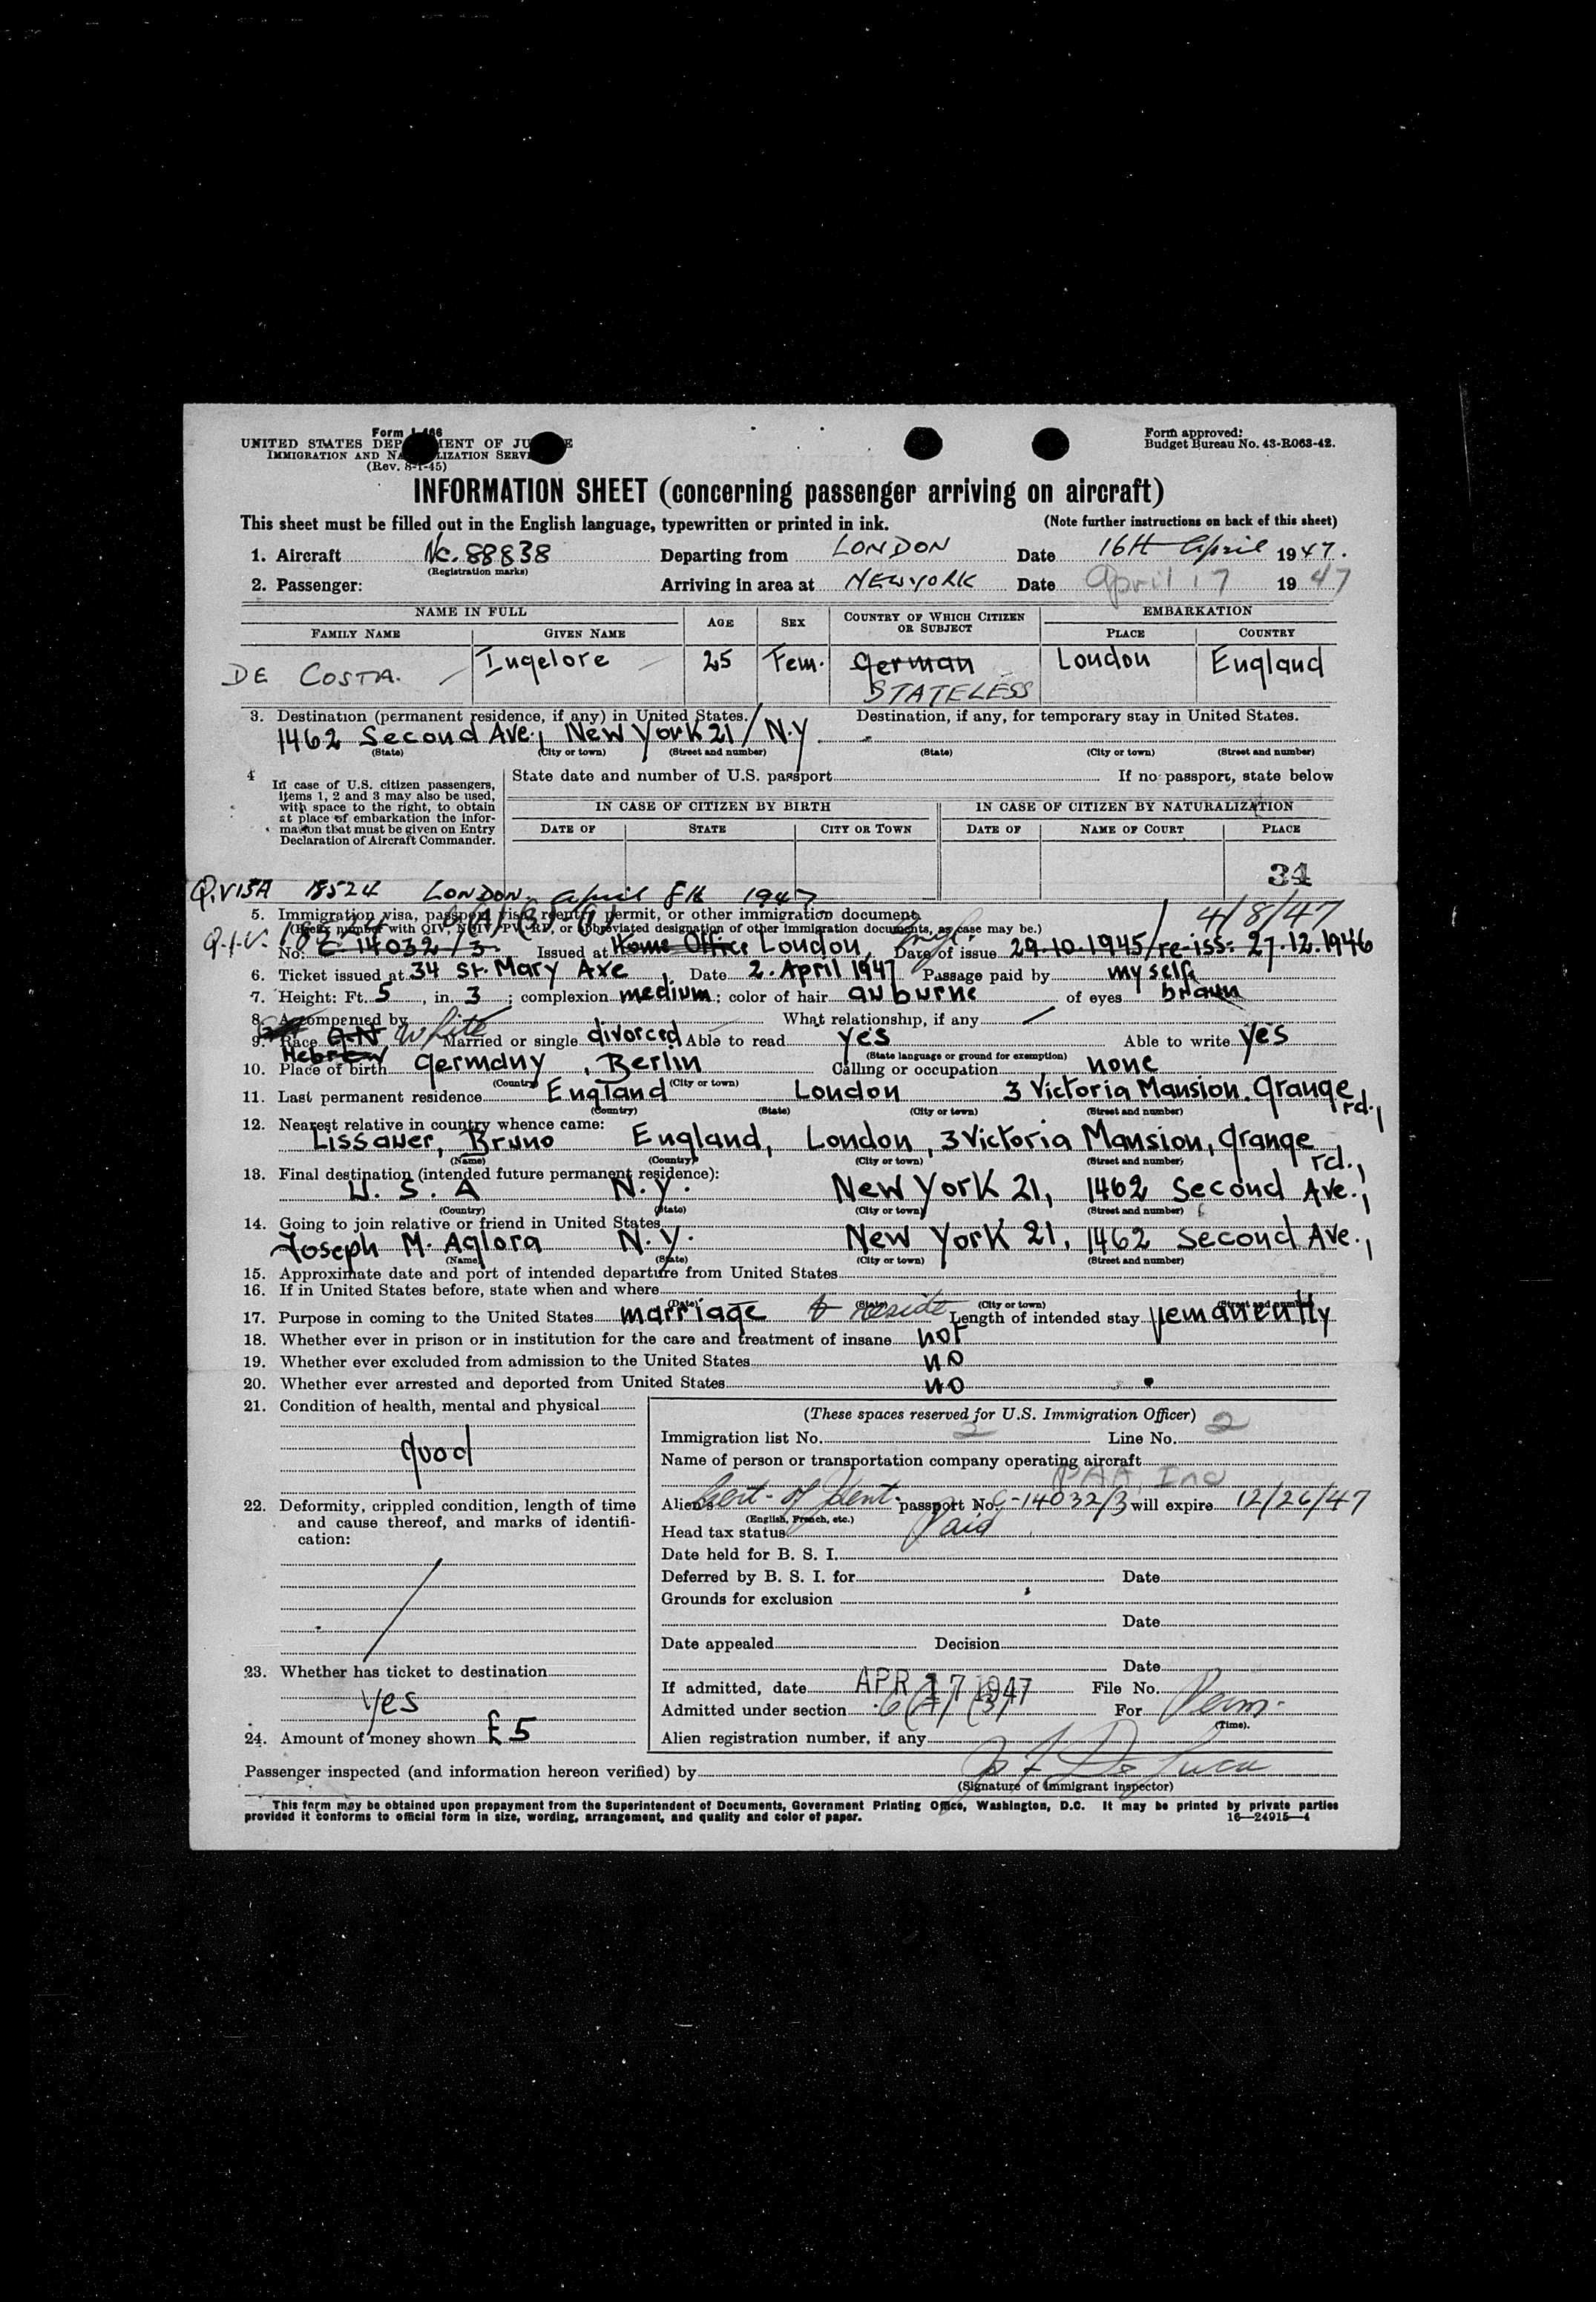 Form I-466
UNITED STATES DEPARTMENT OF JUSTICE
IMMIGRATION AND NATURALIZATION SERVICE
(Rev. 8-1-45)
Form approved:
Budget Bureau No. 43-R063-42.
INFORMATION SHEET (concerning passenger arriving on aircraft)
This sheet must be filled out in the English language, typewritten or printed in ink. (Note further instructions on back of this sheet)
1. Aircraft Nc. 88838 Departing from LONDON Date 16th April 1947.
(Registration marks)
2. Passenger: Arriving in area at NEW YORK Date April 17 1947
NAME IN FULL AGE SEX COUNTRY OF WHICH CITIZEN OR SUBJECT EMBARKATION
FAMILY NAME GIVEN NAME PLACE COUNTRY
DE COSTA. Ingelore 25 Fem. German London England
STATELESS
3. Destination (permanent residence, if any) in United States. Destination, if any, for temporary stay in United States.
1462 Second Ave., New York 21 / N.Y.
(State) (City or town) (Street and number) (State) (City or town) (Street and number)
4 In case of U.S. citizen passengers, items 1, 2 and 3 may also be used, with space to the right, to obtain at place of embarkation the information that must be given on Entry Declaration of Aircraft Commander.
State date and number of U.S. passport If no passport, state below
IN CASE OF CITIZEN BY BIRTH IN CASE OF CITIZEN BY NATURALIZATION
DATE OF STATE CITY OR TOWN DATE OF NAME OF COURT PLACE
34
Q. VISA 18524 LONDON. April 8th 1947
5. Immigration visa, passport visa, reentry permit, or other immigration document,
(Prefix number with QIV, NQIV, PV, RP, or abbreviated designation of other immigration documents, as case may be.) 4/8/47
Q.I.V. 18524 6(A)(3)
No. C-14032/3 Issued at Home Office London, Date of issue 29.10.1945/re-iss. 27.12.1946
6. Ticket issued at 34 St. Mary Axe, Date 2. April 1947 Passage paid by my self
7. Height: Ft. 5, in. 3; complexion medium; color of hair auburne of eyes brown
8. Accompanied by What relationship, if any
9. Race White Married or single divorced Able to read yes Able to write yes
Hebrew (State language or ground for exemption)
10. Place of birth Germany, Berlin Calling or occupation none
(Country) (City or town)
11. Last permanent residence England London 3 Victoria Mansion, Grange rd.,
(Country) (State) (City or town) (Street and number)
12. Nearest relative in country whence came:
Lissauer, Bruno England, London, 3 Victoria Mansion, Grange rd.,
(Name) (Country) (City or town) (Street and number)
13. Final destination (intended future permanent residence):
U.S.A N.Y. New York 21, 1462 Second Ave.,
(Country) (State) (City or town) (Street and number)
14. Going to join relative or friend in United States
Joseph M. Aglora N.Y. New York 21, 1462 Second Ave.,
(Name) (State) (City or town) (Street and number)
15. Approximate date and port of intended departure from United States
16. If in United States before, state when and where
(Date) (State) (City or town) (Street and number)
17. Purpose in coming to the United States marriage to reside Length of intended stay pemanently
18. Whether ever in prison or in institution for the care and treatment of insane not
19. Whether ever excluded from admission to the United States no
20. Whether ever arrested and deported from United States no
21. Condition of health, mental and physical
good
22. Deformity, crippled condition, length of time and cause thereof, and marks of identification:
23. Whether has ticket to destination
yes
24. Amount of money shown £5
(These spaces reserved for U.S. Immigration Officer)
Immigration list No. 2 Line No. 2
Name of person or transportation company operating aircraft
PAA, Inc
Alien's Cert. of Ident. passport No. C-14032/3 will expire 12/26/47
(English, French, etc.)
Head tax status Paid
Date held for B. S. I.
Deferred by B. S. I. for Date
Grounds for exclusion
Date
Date appealed Decision
Date
If admitted, date APR 17 1947 File No.
Admitted under section 6(A)(3) For Perm.
(Time).
Alien registration number, if any
Passenger inspected (and information hereon verified) by
(Signature of immigrant inspector)
This form may be obtained upon prepayment from the Superintendent of Documents, Government Printing Office, Washington, D.C. It may be printed by private parties
provided it conforms to official form in size, wording, arrangement, and quality and color of paper. 16—24915-4